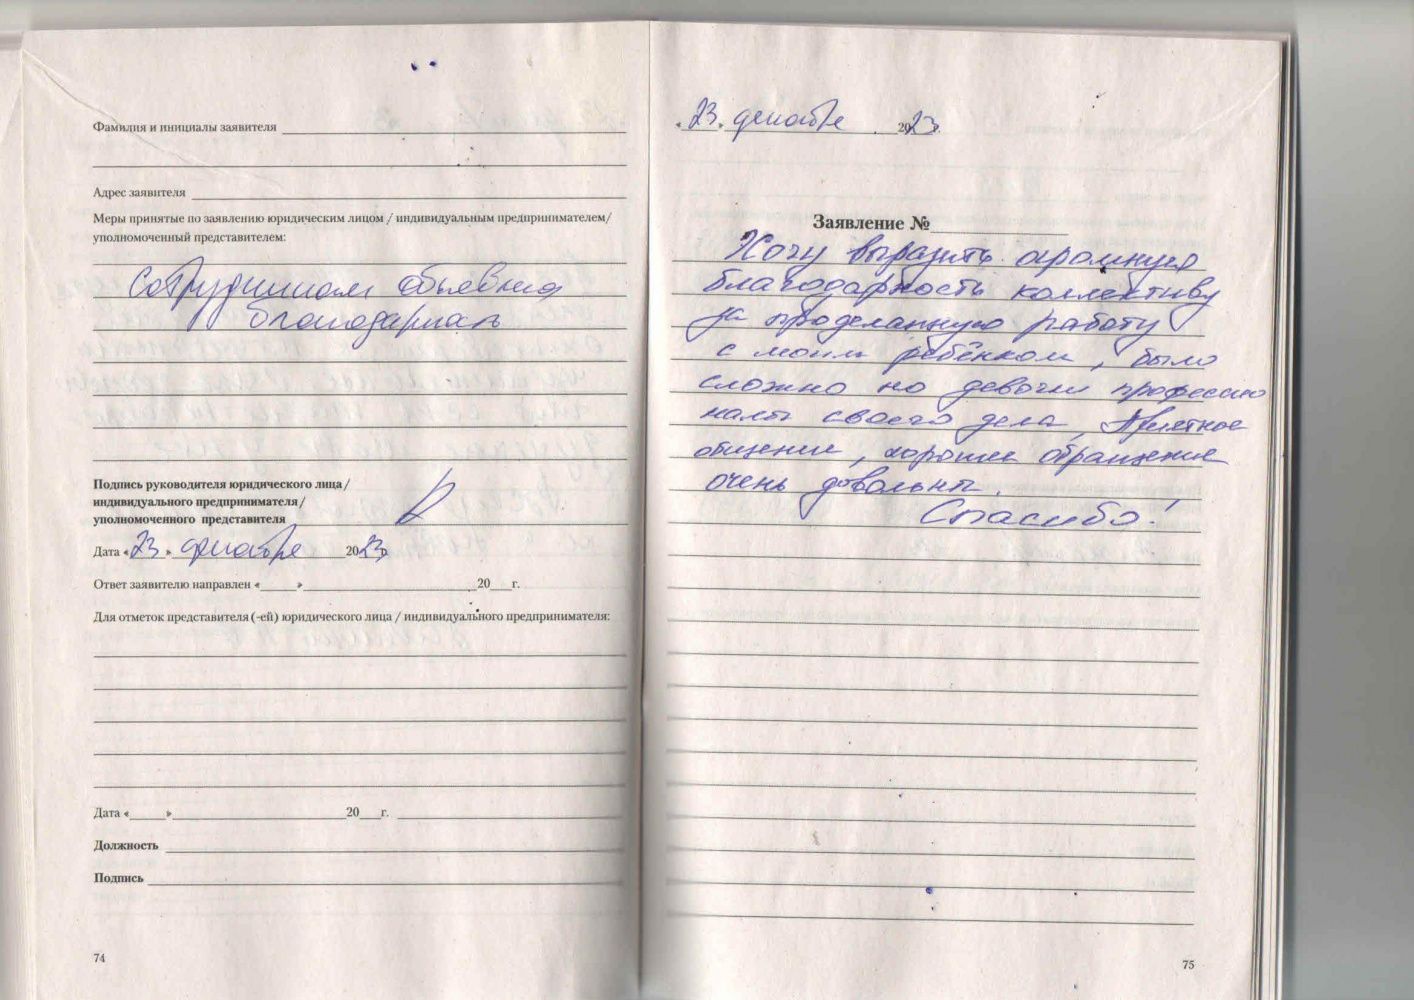 Фамилия и инициалы заявителя
Адрес заявителя
Меры принятые по заявлению юридическим лицом / индивидуальным предпринимателем/
уполномоченный представителем:
Сотрудникам объявлена
благодарность
Подпись руководителя юридического лица /
индивидуального предпринимателя /
уполномоченного представителя
Дата «23» декабря 2023г.
Ответ заявителю направлен «____»____20___г.
Для отметок представителя (-ей) юридического лица / индивидуального предпринимателя:
Дата «____»____20___г.
Должность
Подпись
74
«23» декабря 2023г.
Заявление №
Хочу выразить огромную
благодарность коллективу
за проделанную работу
с моим ребёнком, было
сложно но девочки профессио
налы своего дела, Приятное
общение, хорошее обращение
очень довольны.
Спасибо!
75